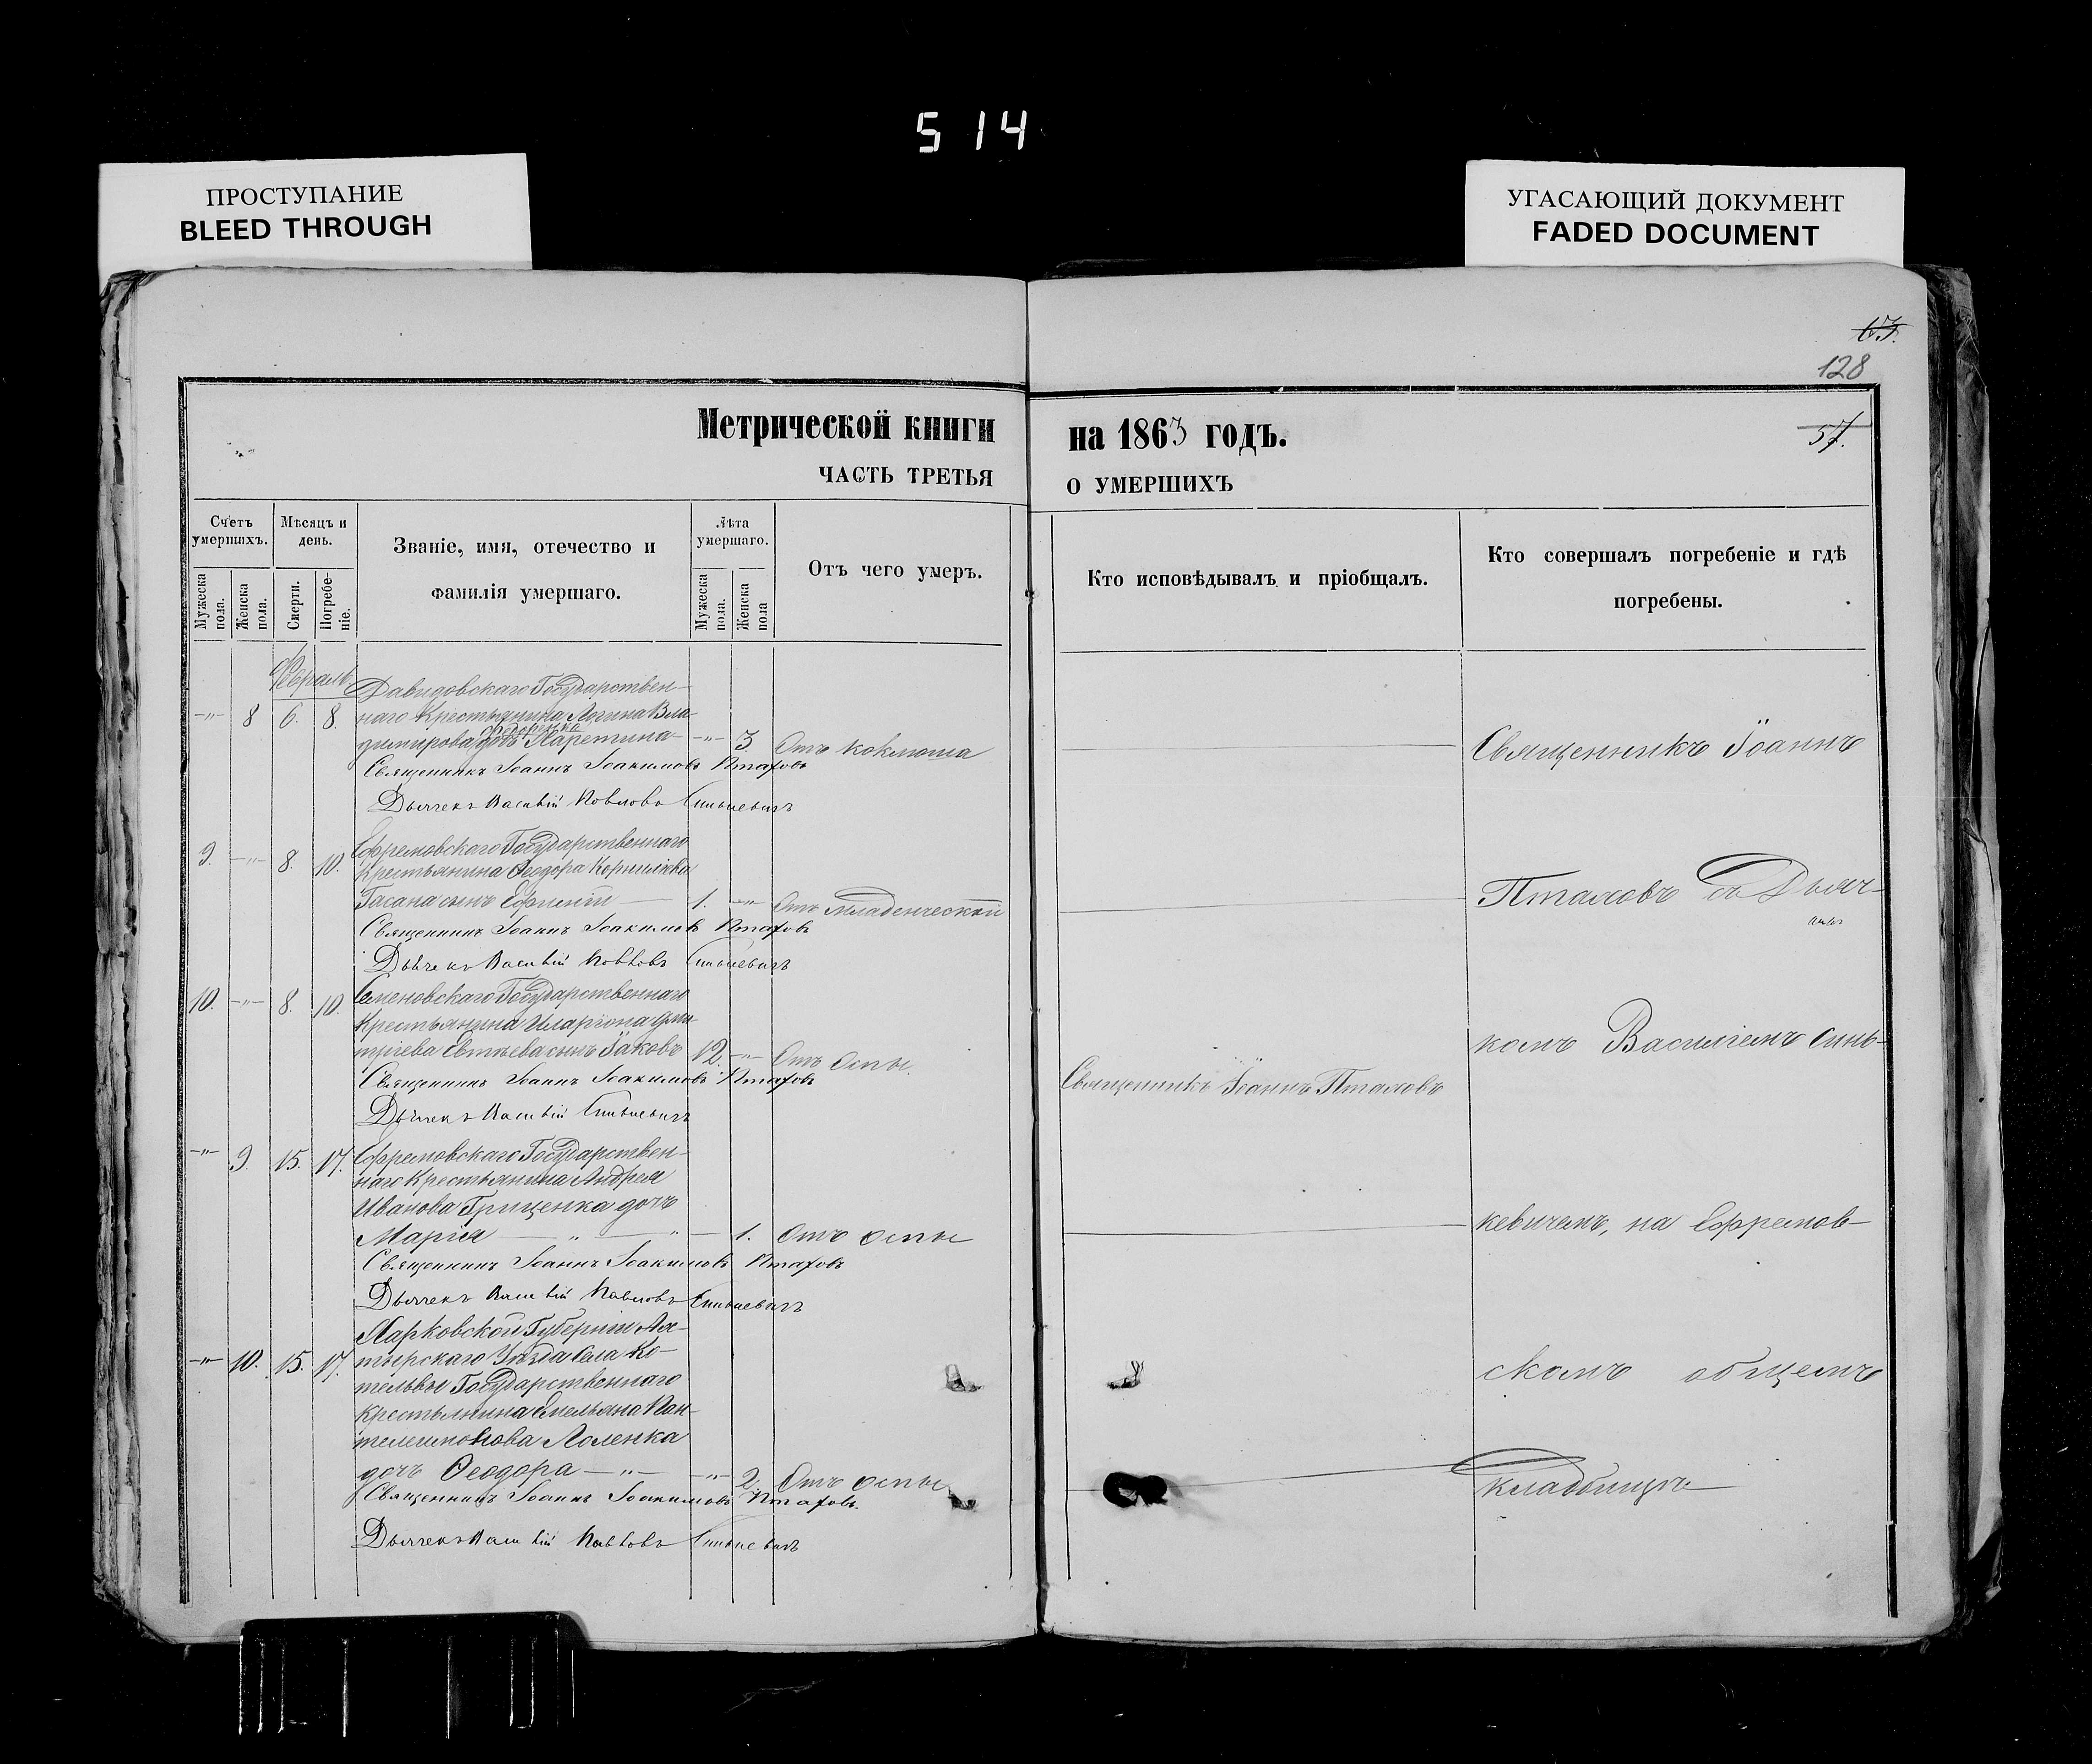 514
ПРОСТУПАНИЕ
BLEED THROUGH
УГАСАЮЩИЙ ДОКУМЕНТ
FADED DOCUMENT
128
57.
Метрической книги на 1863 годъ.
ЧАСТЬ ТРЕТЬЯ О УМЕРШИХЪ
Счетъ умершихъ.
Мѣсяцъ и день.
Званіе, имя, отечество и фамилія умершаго.
Лѣта умершаго.
Отъ чего умеръ.
Кто исповѣдывалъ и пріобщалъ.
Кто совершалъ погребеніе и гдѣ погребены.
Мужеска пола.
Женска пола.
Смерти.
Погребеніе.
Мужеска пола.
Женска пола
Февраль
Давидовскаго Государствен-
-"- 8 6. 8 наго Крестьянина Логина Вла-
димирова дочь -"- 3. Отъ коклюша
Священникъ Іоаннъ Іоакимовъ Птаховъ
Дьячекъ Василій Павловъ Синькевичъ
Священникъ Іоаннъ
Ефремовскаго Государственнаго
9. -"- 8. 10. Крестьянина Ѳеодора Корнилiева
сынъ Ефимій 1. -"- Отъ младенческой
Священникъ Іоаннъ Іоакимовъ Птаховъ
Дьячекъ Василій Павловъ Синькевичъ
Птаховъ съ Дьяч-
Семеновскаго Государственнаго
10. -"- 8. 10. Крестьянина Иларіона Дми-
тріева Евтѣева сынъ Іаковъ 12. -"- Отъ Оспы.
Священникъ Іоаннъ Іоакимовъ Птаховъ
Дьячекъ Василій Синькевичъ
Священникъ Іоаннъ Птаховъ
комъ Василіемъ Синь-
-"- 9. 15. 17. Ефремовскаго Государствен-
наго Крестьянина Андрея
Иванова Гриценка дочь
Марія -"- 1. Отъ оспы
Священникъ Іоаннъ Іоакимовъ Птаховъ
Дьячекъ Василій Павловъ Синькевичъ
кевичемъ, на Ефремов-
Харковской Губерніи Ах-
-"- 10. 15. 17. тырскаго Уѣзда села Ко-
тельвы Государственнаго
Крестьянина Емельяна Пан-
телеимонова
дочь Ѳеодора -"- 2. Отъ оспы
Священникъ Іоаннъ Іоакимовъ Птаховъ
Дьячекъ Василій Павловъ Синькевичъ
скомъ общемъ
кладбищѣ